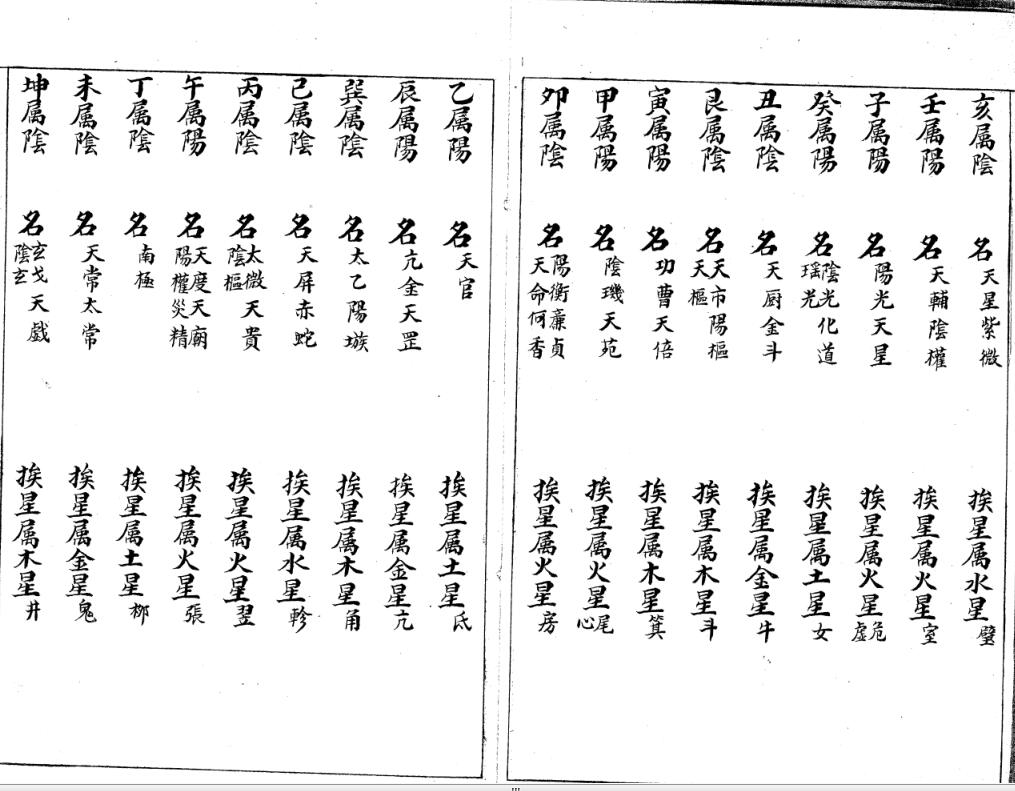 亥属陰 名天星紫微 挨星属水星壁
壬属陽 名天輔陰權 挨星属火星室
子属陽 名陽光天星 挨星属火星危虚
癸属陽 名陰光瑶光化道 挨星属土星女
丑属陰 名天厨金斗 挨星属金星牛
艮属陰 名天市天樞陽樞 挨星属木星斗
寅属陽 名功曹天倍 挨星属木星箕
甲属陽 名陰璣天苑 挨星属火星尾心
卯属陰 名陽衡廉貞天命何香 挨星属火星房
乙属陽 名天官 挨星属土星氐
辰属陽 名亢金天罡 挨星属金星亢
巽属陰 名太乙陽璇 挨星属木星角
巳属陰 名天屏赤蛇 挨星属水星軫
丙属陽 名太微陰樞天貴 挨星属火星翌
午属陽 名天度天廟陽權災精 挨星属火星張
丁属陰 名南極 挨星属土星柳
未属陰 名天常太常 挨星属金星鬼
坤属陰 名玄戈陰玄天戲 挨星属木星井